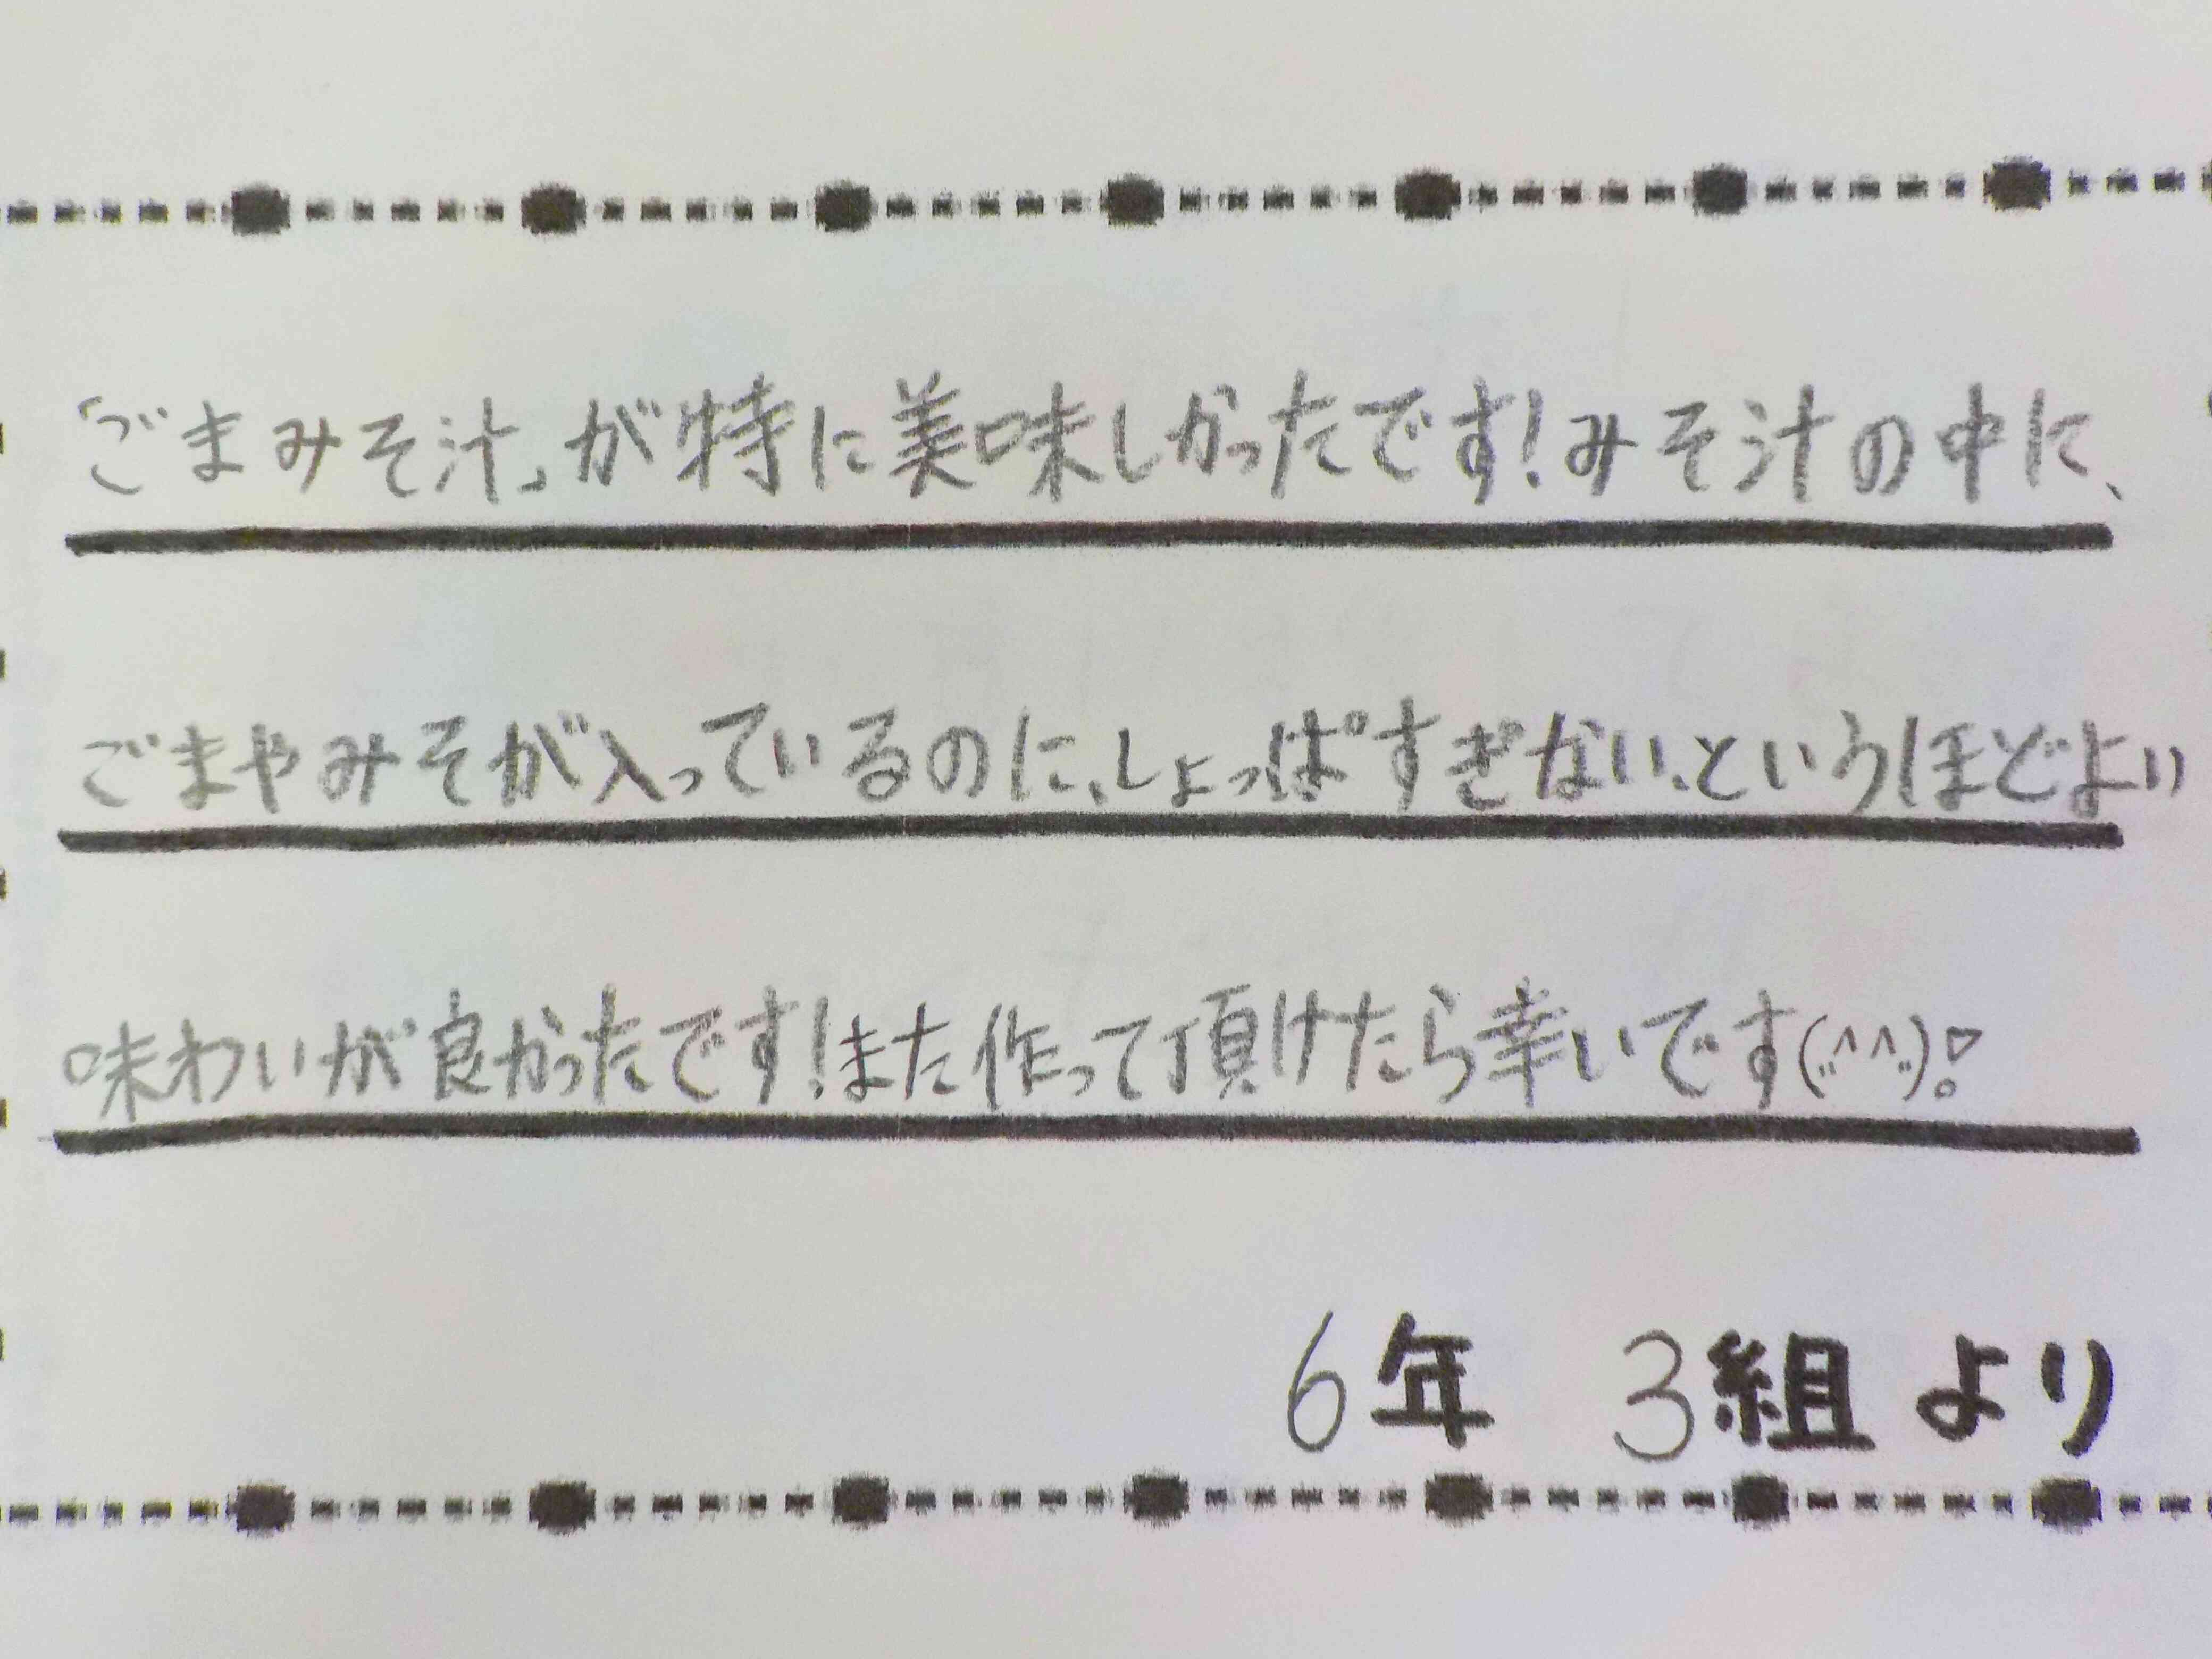 「ごまみそ汁」が特に美味しかったです!みそ汁の中に、
ごまやみそが入っているのに、しょっぱすぎない、というほどよい
味わいが良かったです!また作って頂けたら幸いです(^^)!
6年 3組 より